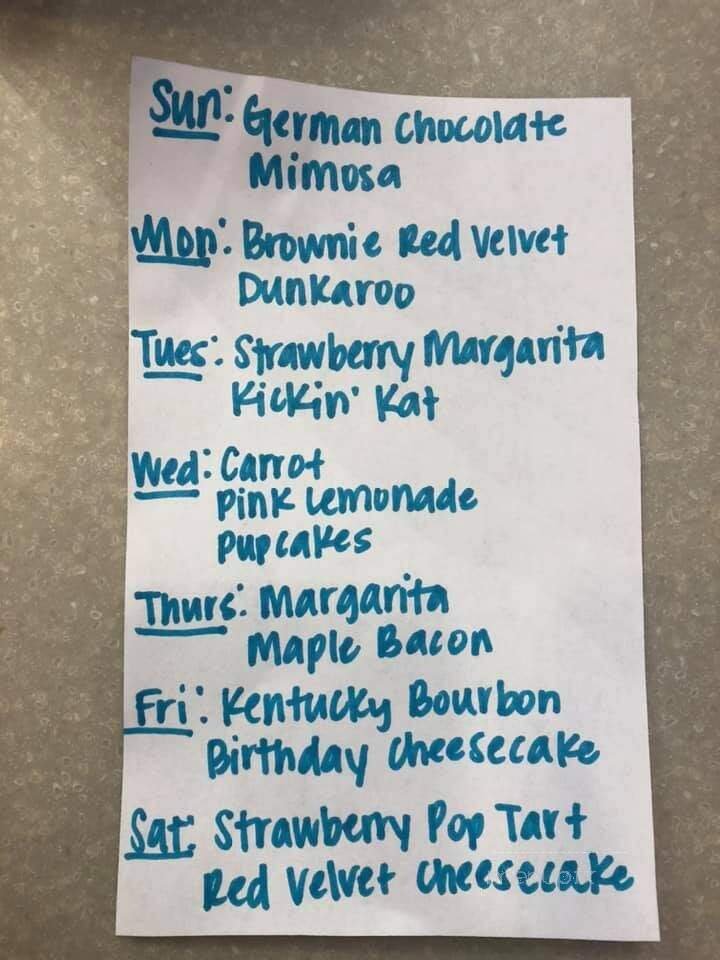 Sun: German Chocolate
Mimosa
Mon: Brownie Red Velvet
Dunkaroo
Tues: Strawberry Margarita
Kickin' Kat
Wed: Carrot
Pink Lemonade
Pupcakes
Thurs: Margarita
Maple Bacon
Fri: Kentucky Bourbon
Birthday Cheesecake
Sat: Strawberry Pop Tart
Red Velvet Cheesecake